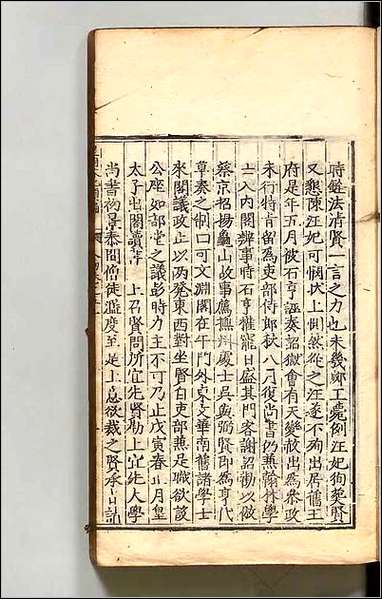 時雖法清賢一言之力也未幾郕王薨例汪妃狥葬賢
又懇陳汪妃可憫状上惻然從之汪遂不殉出居舊王
府是年五月被石亨誣奏詔獄會有天變赦出為叅政
未行特肯留為吏部侍郎秋八月復尚書仍兼翰林學
士入內閣辦事時石亨權寵日盛其門客謝詔勸以倣
蔡京招楊龜山故事薦撫州處士吳與弼賢即為亨代
草奏之制口可文淵閣在午門外東文華南舊諸學士
來閣議政正以兩凳東西對坐賢自吏部兼是職欲設
公座如部堂之議彭時力主不可乃止戊寅春正月皇
太子出閣讀書　上召賢問所宜先賢勑上宜先人學
尚書初景泰間僧徒濫度至是上意欲裁之賢承旨記